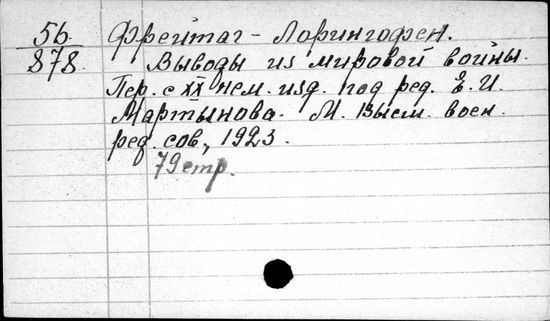 5б Фрейтаг-Лорингофен.
878. Выводы из мировой войны.
Пер. с XX нем. изд. под ред. Е. И.
Мартынова. М. Высш. воен.
ред. сов., 1923.
79 стр.